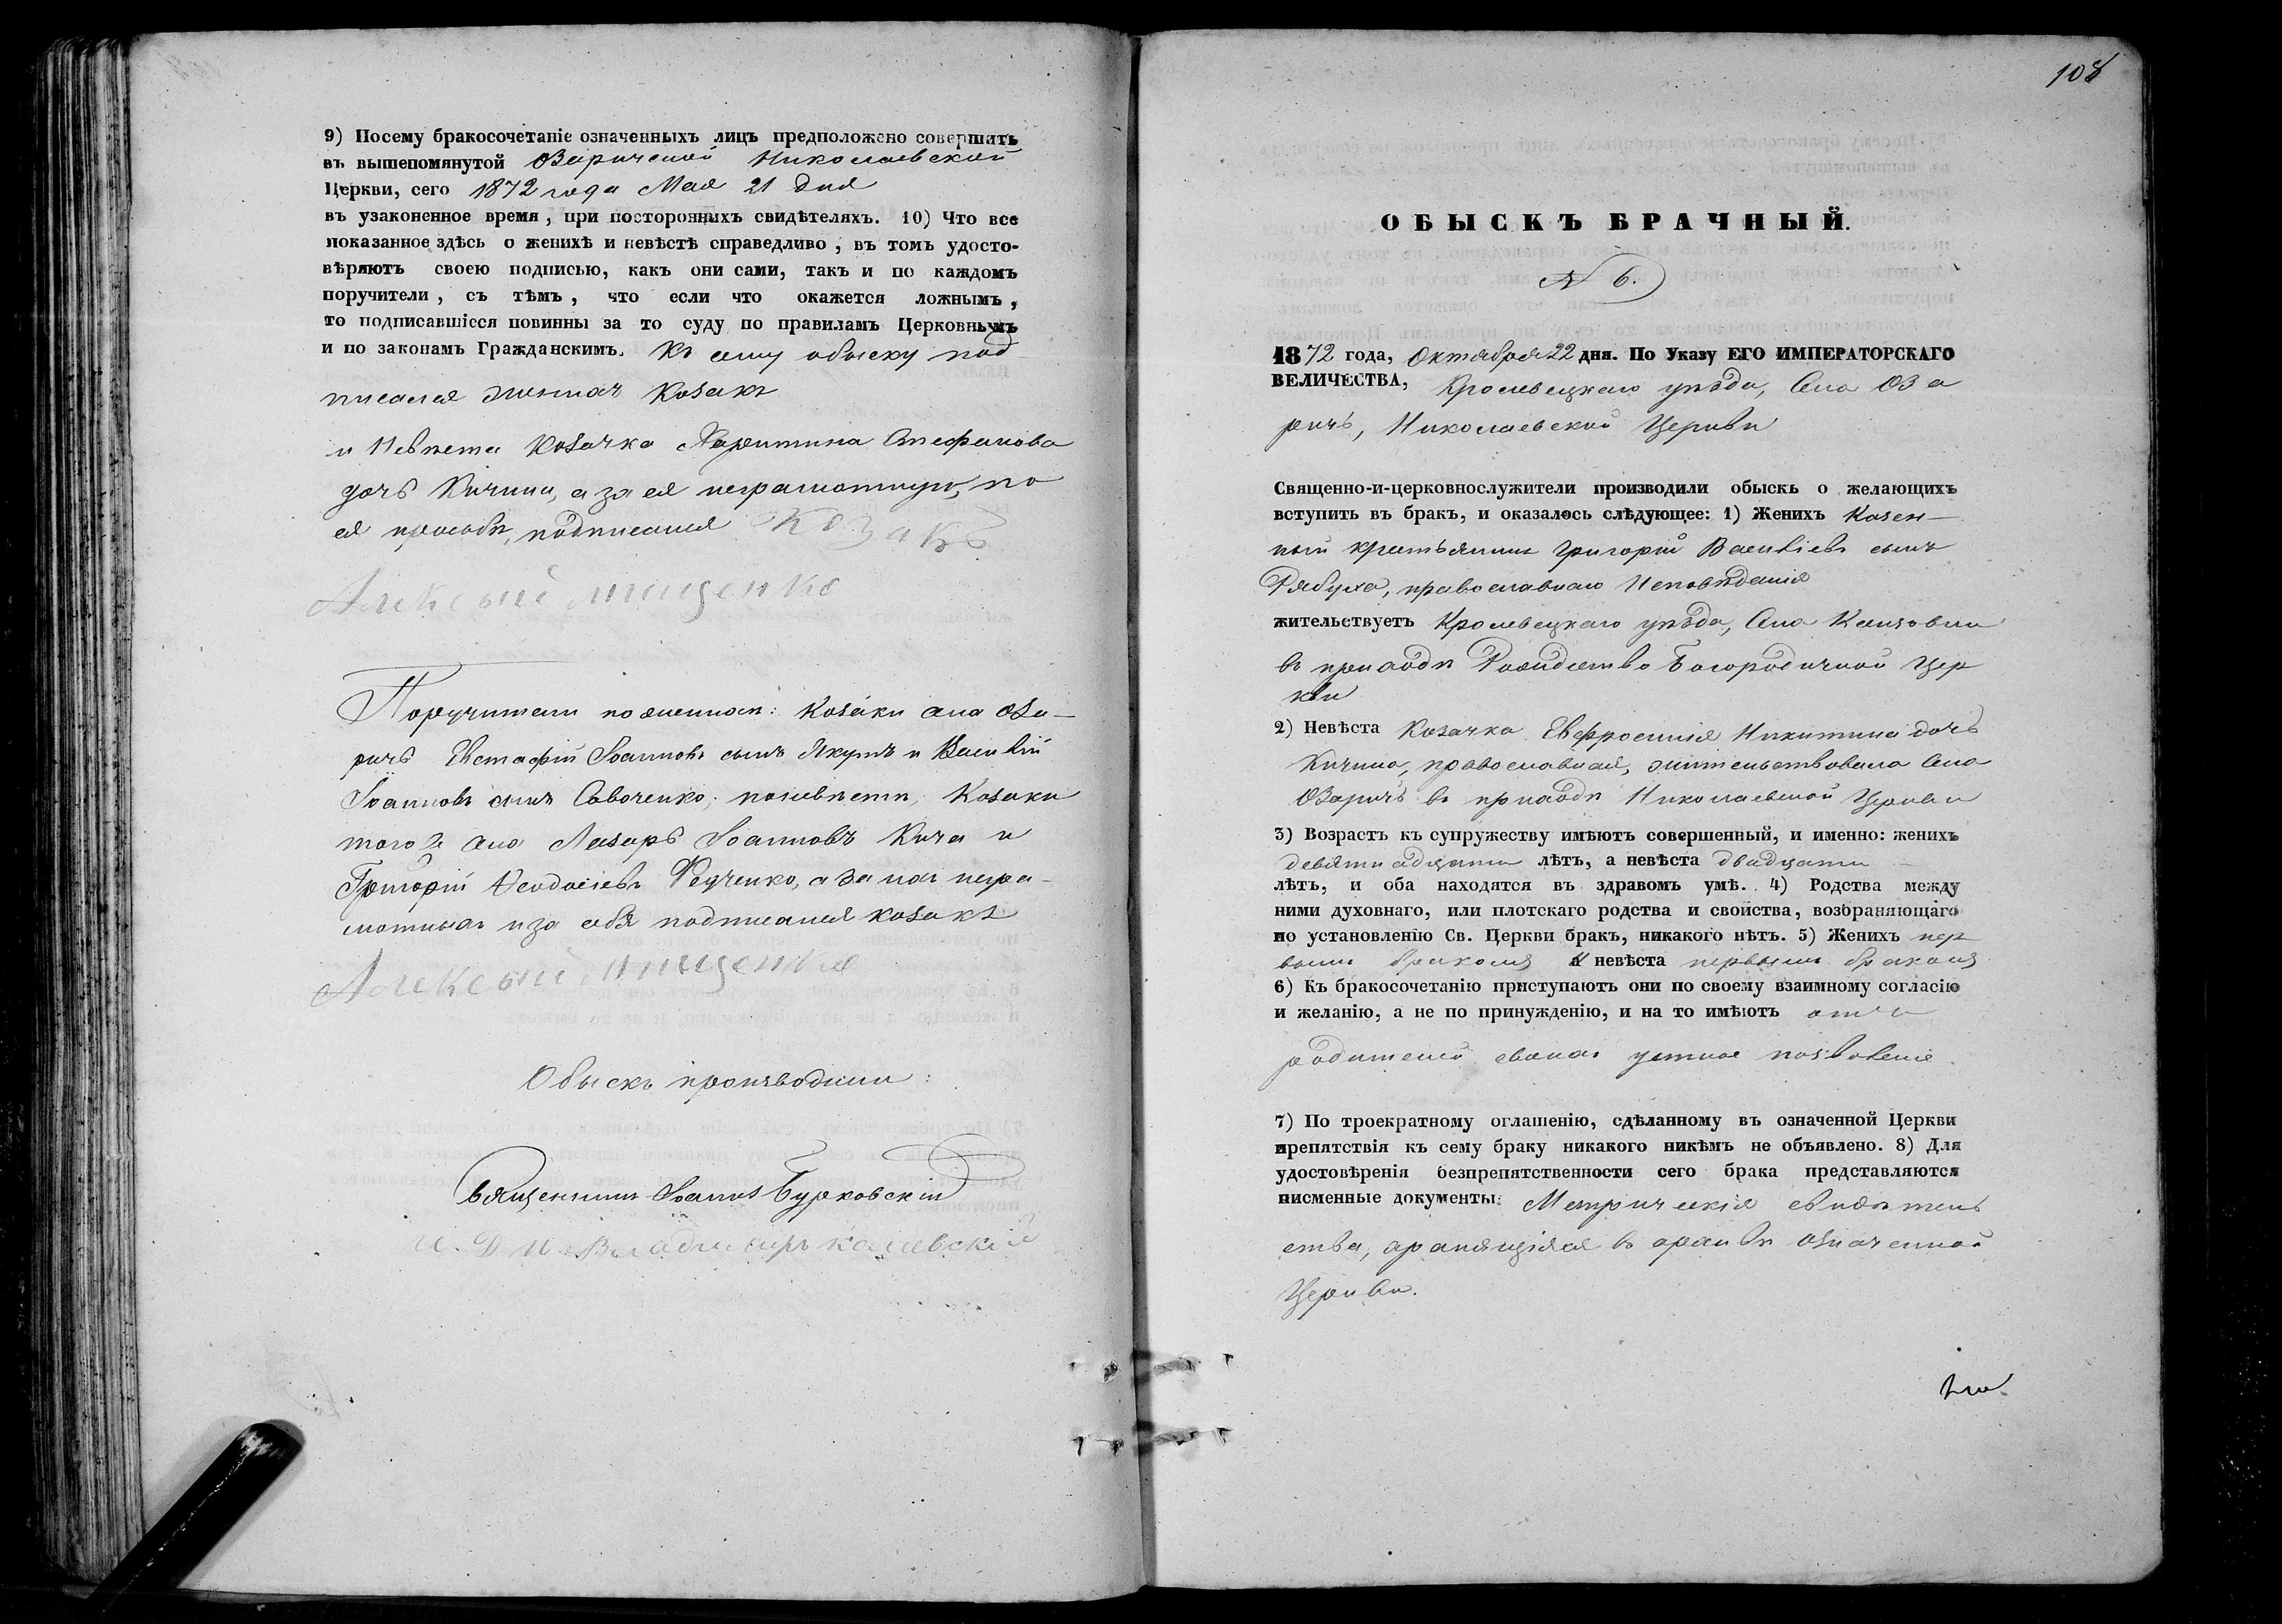 9) Посему бракосочетаніе означенныхъ лицъ предположено совершить
въ вышепомянутой Озаричской Николаевской
Церкви, сего 1872 года Мая 21 дня
въ узаконенное время, при постороннихъ свидѣтеляхъ. 10) Что все
показанное здѣсь о женихѣ и невѣстѣ справедливо, въ томъ удосто-
вѣряютъ своею подписью, какъ они сами, такъ и по каждомъ
поручители, съ тѣмъ, что если что окажется ложнымъ,
то подписавшіеся повинны за то суду по правиламъ Церковнымъ
и по законамъ Гражданскимъ. Къ сему обыску под
писался женихъ Козакъ
и Невѣста Козачка Харитина Стефанова
дочь Кичина, а за ея неграмотную, по
ея прозьбѣ, подписался Козакъ
Алексѣй Мищенко
Поручители по женихѣ: Козаки села Оза-
ричъ Евстафій Іоанновъ сынъ Якутъ и Василій
Іоанновъ сынъ Савоченко; по невѣстѣ, Козаки
того же села Лазарь Іоанновъ Кича и
Григорій Ѳеодосіевъ Федченко, а за нихъ негра-
мотныхъ и за себя подписался козакъ
Алексѣй Мищенко
Обыскъ производили:
Священникъ Іоаннъ Бурковскій
И. Д. П. Владимиръ Калевскій
108
ОБЫСКЪ БРАЧНЫЙ.
№ 6.
1872 года, Октября 22 дня. По Указу ЕГО ИМПЕРАТОРСКАГО
ВЕЛИЧЕСТВА, Кролевецкаго уѣзда, Села Оза
ричъ, Николаевской Церкви
Священно-и-церковнослужители производили обыскъ о желающихъ
вступить въ бракъ, и оказалось слѣдующее: 1) Женихъ Казен-
ный крестьянинъ Григорій Васильевъ сынъ
Рябуха, православнаго Исповѣданія
жительствуетъ Кролевецкаго уѣзда, Села
въ приходѣ Рождество Богородичной Цер
кви
2) Невѣста Козачка Евфросинія Никитина дочь
Кичина, православная, жительствовала Села
Озаричъ въ приходѣ Николаевской Церкви
3) Возрастъ къ супружеству имѣютъ совершенный, и именно: женихъ
девятнадцати лѣтъ, а невѣста двадцати
лѣтъ, и оба находятся въ здравомъ умѣ. 4) Родства между
ними духовнаго, или плотскаго родства и свойства, возбраняющаго
по установленію Св. Церкви бракъ, никакого нѣтъ. 5) Женихъ пер
вымъ бракомъ и невѣста первымъ бракомъ
6) Къ бракосочетанію приступаютъ они по своему взаимному согласію
и желанію, а не по принужденію, и на то имѣютъ отъ
родителей своихъ устное позволеніе.
7) По троекратному оглашенію, сдѣланному въ означенной Церкви
препятствія къ сему браку никакого никѣмъ не объявлено. 8) Для
удостовѣренія безпрепятственности сего брака представляются
писменные документы: Метрическія свидѣтель
ства, хранящіяся въ архивѣ означенной
Церкви.